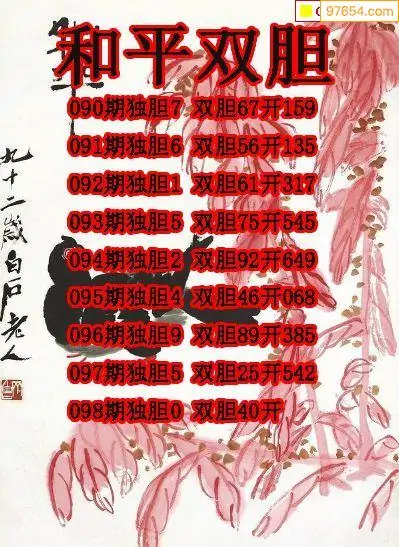 97654.com
和平双胆
090期独胆7 双胆67开159
091期独胆6 双胆56开135
092期独胆1 双胆61开317
093期独胆5 双胆75开545
094期独胆2 双胆92开649
095期独胆4 双胆46开068
096期独胆9 双胆89开385
097期独胆5 双胆25开542
098期独胆0 双胆40开
九十二岁白石老人